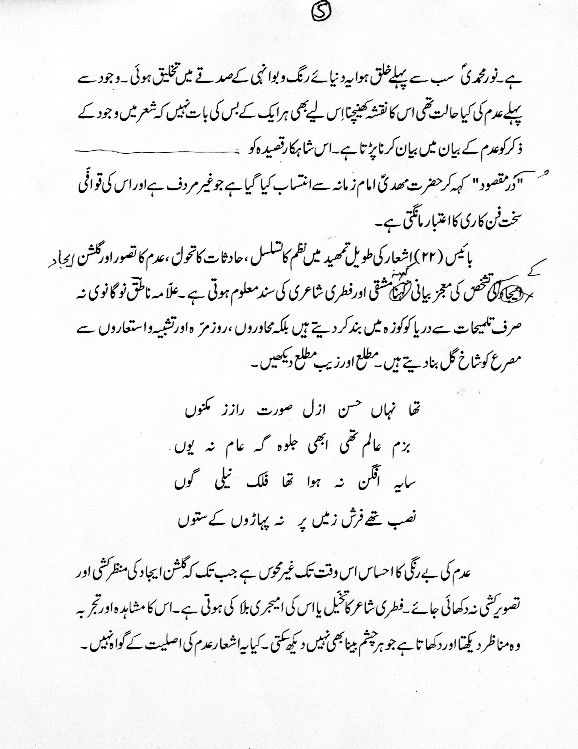 ۵
ہے۔ نور محمدیؐ سب سے پہلے خلق ہوا یہ دنیائے رنگ و بو انہی کے صدقے میں تخلیق ہوئی۔ وجود سے
پہلے عدم کی کیا حالت تھی اس کا نقشہ کھینچنا اس لیے بھی ہر ایک کے بس کی بات نہیں کہ شعر میں وجود کے
ذکر کو عدم کے بیان میں بیان کرنا پڑتا ہے۔ اس شاہکار قصیدہ کو
"دُرِ مقصود" کہہ کر حضرت مہدیؑ امام زمانہ سے انتساب کیا گیا ہے جو غیر مردف ہے اور اس کی قوافی
سخت فن کاری کا اعتبار مانگتی ہے۔
بائیس (۲۲) اشعار کی طویل تمہید میں نظم کا تسلسل، حادثات کا تحول، عدم کا تصور اور گلشن ایجاد
کے تشخص کی معجز بیانی کہنہ مشقی اور فطری شاعری کی سند معلوم ہوتی ہے۔ علامہ ناطق نوگانوی نہ
صرف تلمیحات سے دریا کو کوزہ میں بند کر دیتے ہیں بلکہ محاوروں، روز مرّہ اور تشبیہ و استعاروں سے
مصرع کو شاخ گل بنا دیتے ہیں۔ مطلع اور زیب مطلع دیکھیں۔
تھا نہاں حسن ازل صورت راز مکنوں
بزم عالم تھی ابھی جلوہ گہ عام نہ یوں
سایہ افگن نہ ہوا تھا فلک نیلی گوں
نصب تھے فرش زمیں پر نہ پہاڑوں کے ستوں
عدم کی بے رنگی کا احساس اس وقت تک غیر محوس ہے جب تک کہ گلشن ایجاد کی منظر کشی اور
تصویر کشی نہ دکھائی جائے۔ فطری شاعر کا تخیل یا اس کی امیجری بلا کی ہوتی ہے۔ اس کا مشاہدہ اور تجربہ
وہ مناظر دیکھتا اور دکھاتا ہے جو ہر چشم بینا بھی نہیں دیکھ سکتی۔ کیا یہ اشعار عدم کی اصلیت کے گواہ نہیں۔